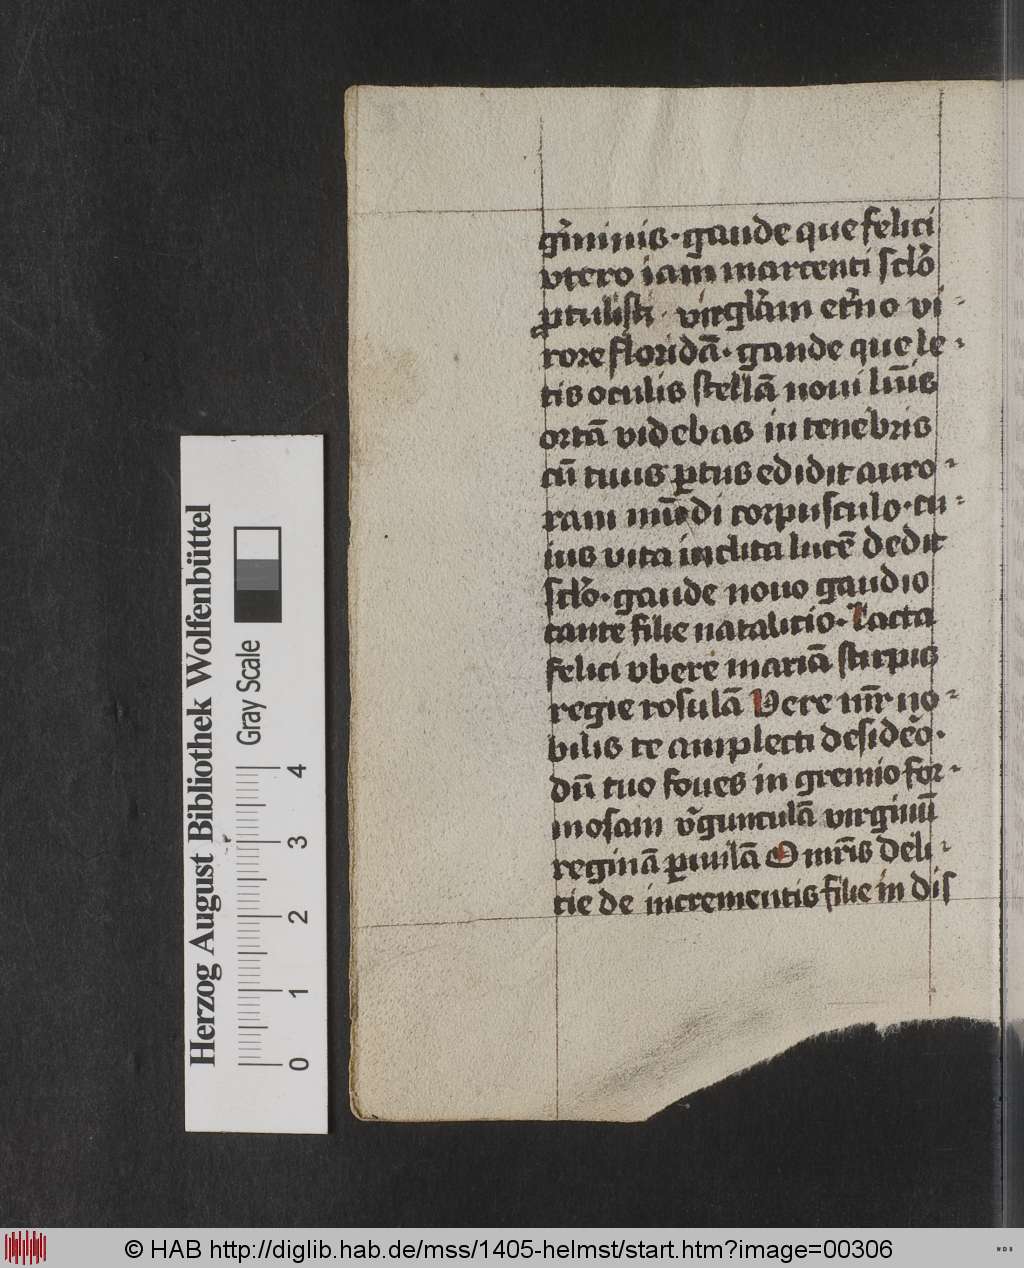 gͥminis · gaude que felici
vtero iam marcenti sclo̕
ꝑtulisti · virglam et̕no vi-
rore floridā · gaude que le-
tis oculis stellā noui lmīs
ortā videbas in tenebris
cū tuus ꝑtus edidit auro-
ram mūdi corpusculo · cu-
ius vita inclita lucē dedit
sclo̕ · gaude nouo gaudio
tante filie natalicio · Lacta
felici vbere mariā stirpis
regie rosulā Vere mr̄ no-
bilis te amplecti desideͦo ·
dū tuo foues in gremio for-
mosam v̕gunculā virginū
reginā ꝑuulā O mr̄is deli-
cie de incrementis filie in dis
Herzog August Bibliothek Wolfenbüttel
Gray Scale
0 1 2 3 4
© HAB http://diglib.hab.de/mss/1405-helmst/start.htm?image=00306